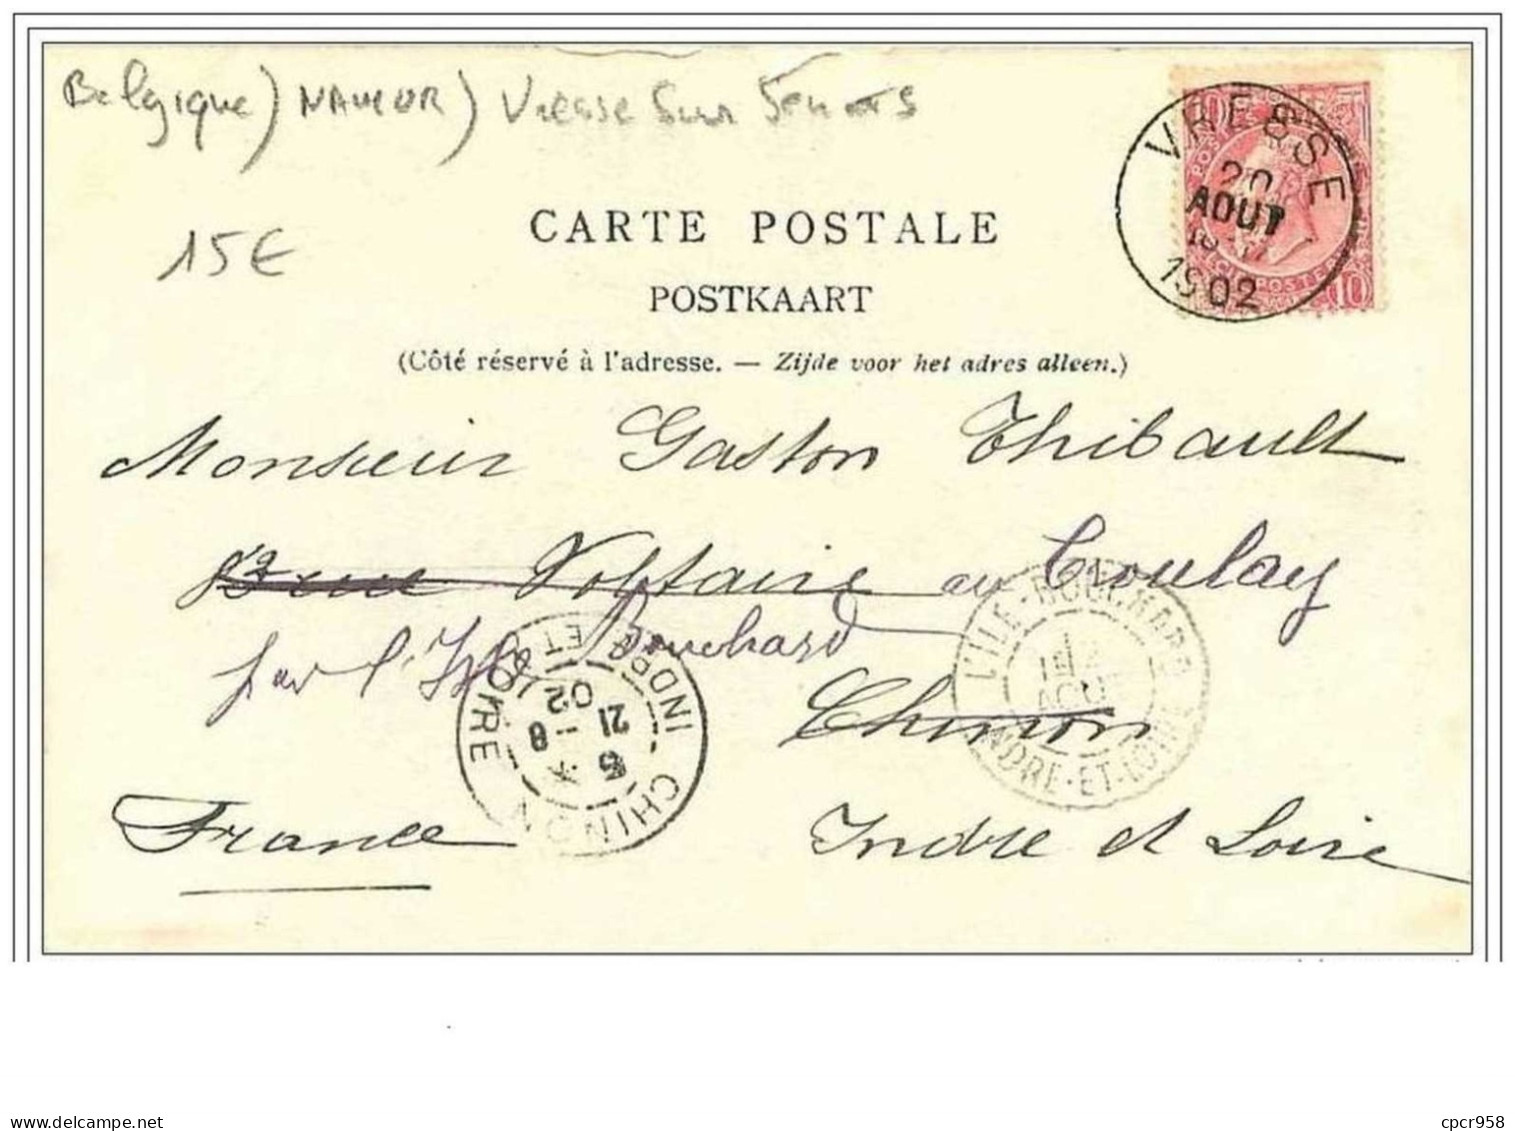 Belgique) NAMUR) Vresse sur Semois
VRESSE
20
AOUT
1902
15€
CARTE POSTALE
POSTKAART
(Côté réservé à l'adresse. — Zijde voor het adres alleen.)
Monsieur Gaston Thibault
Rue Voltaire au Coulay
par l'Ile Bouchard
Chinon
L'ILE-BOUCHARD
AOUT
INDRE-ET-LOIRE
CHINON
INDRE ET LOIRE
5
21 - 8
02
France Indre et Loire
10
www.delcampe.net cpcr958